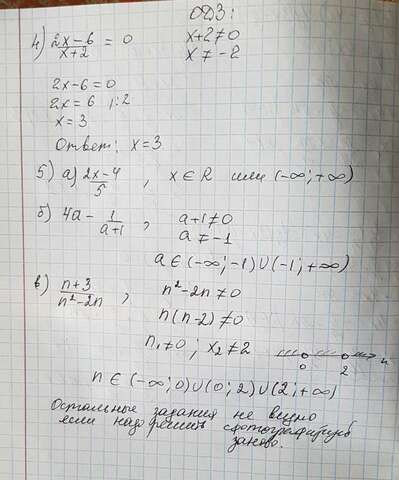 ОДЗ:
4) 2x-6/x+2 = 0
x+2≠0
x≠-2
2x-6=0
2x=6 |:2
x=3
Ответ: x=3
5) а) 2x-4/5, x∈R или (-∞;+∞)
б) 4a - 1/a+1, a+1≠0
a≠-1
a∈(-∞;-1)∪(-1;+∞)
в) n+3/n²-2n, n²-2n≠0
n(n-2)≠0
n₁≠0; x₂≠2
0 2 n
n∈(-∞;0)∪(0;2)∪(2;+∞)
Остальные задания не видно
если надо решить сфотографируй
заново.